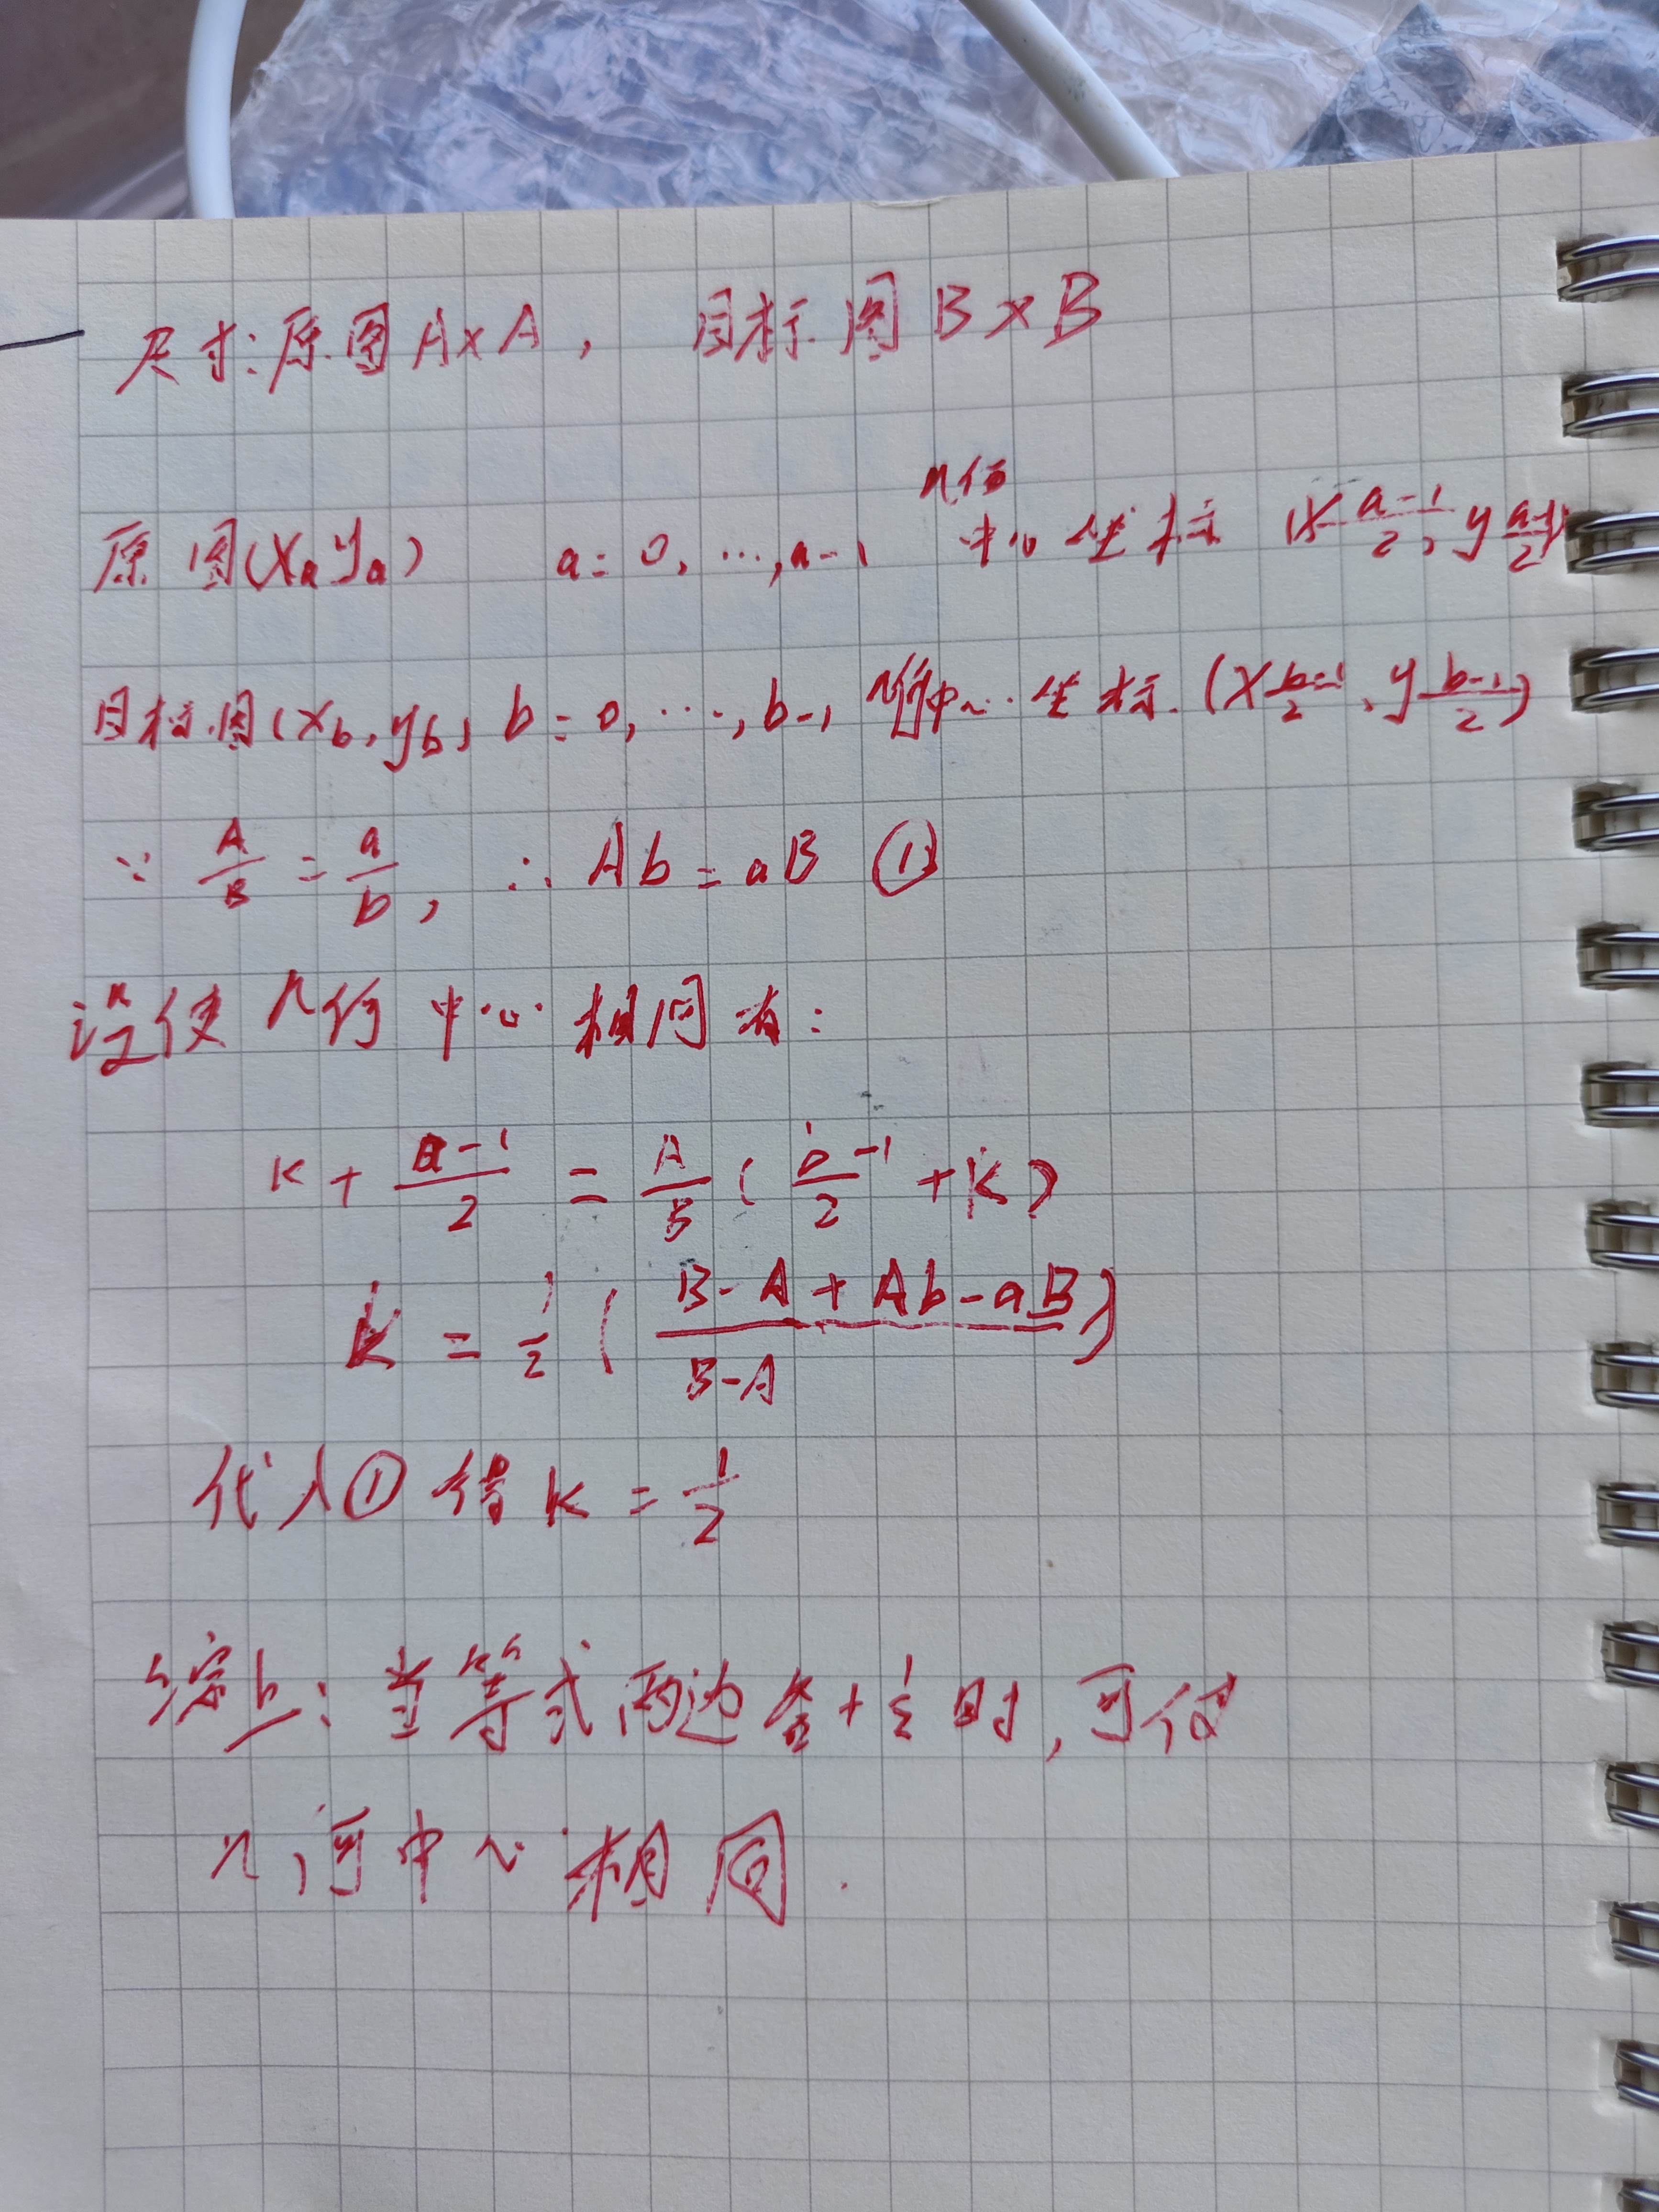 尺寸:原图 A×A, 目标图 B×B
几何
原图(Xa ya) a=0,…,a-1 中心坐标 (X a-1/2, y a-1/2)
目标图(Xb,yb) b=0,…,b-1 几何中心坐标.(X b-1/2, y b-1/2)
∵ A/B = a/b, ∴ Ab=aB ①
设使几何中心相同有:
K + a-1/2 = A/B ( b-1/2 + K )
K = 1/2 ( B-A+Ab-aB / B-A )
代入① 得 K = 1/2
综上:当等式两边各+1/2时,可使
几何中心相同.